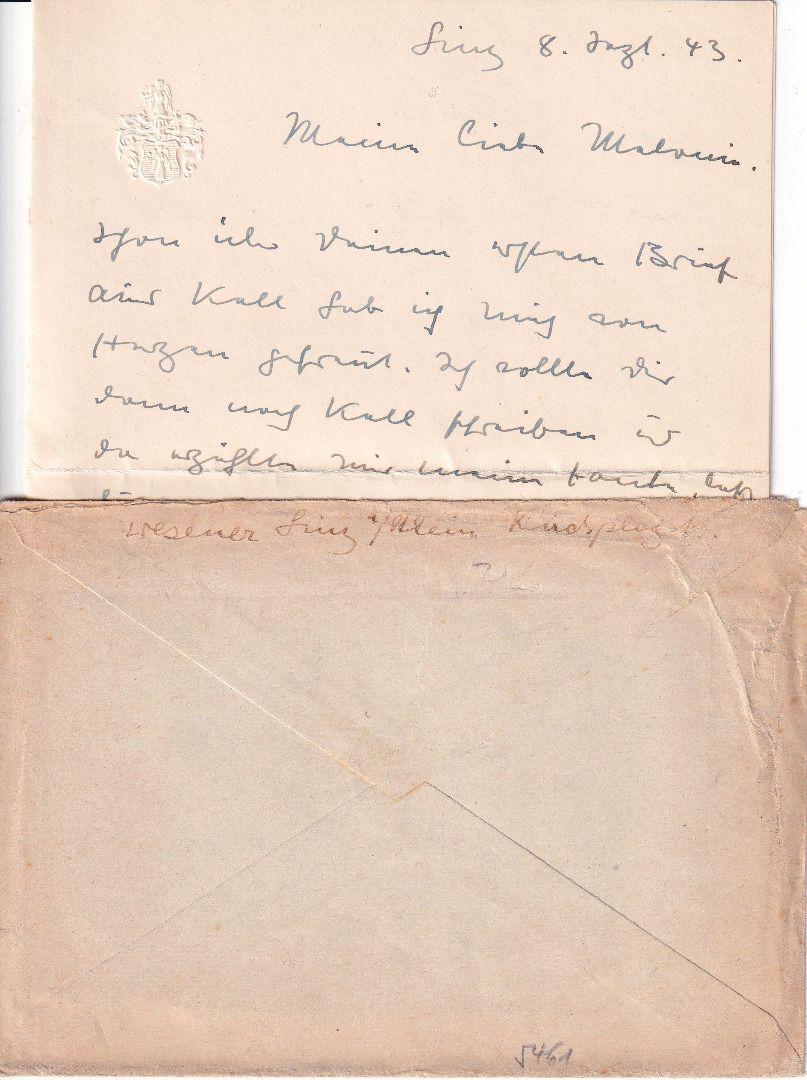 Linz 8. Sept. 43.
Meine liebe Malvine.
Schon über Deinen ersten Brief
aus Kall hab ich mich von
Herzen gefreut. Ich wollte Dir
dann nach Kall schreiben u
da erzählte mir meine Tante, daß
Wesener Linz a/Rhein Kirchplatz
5461